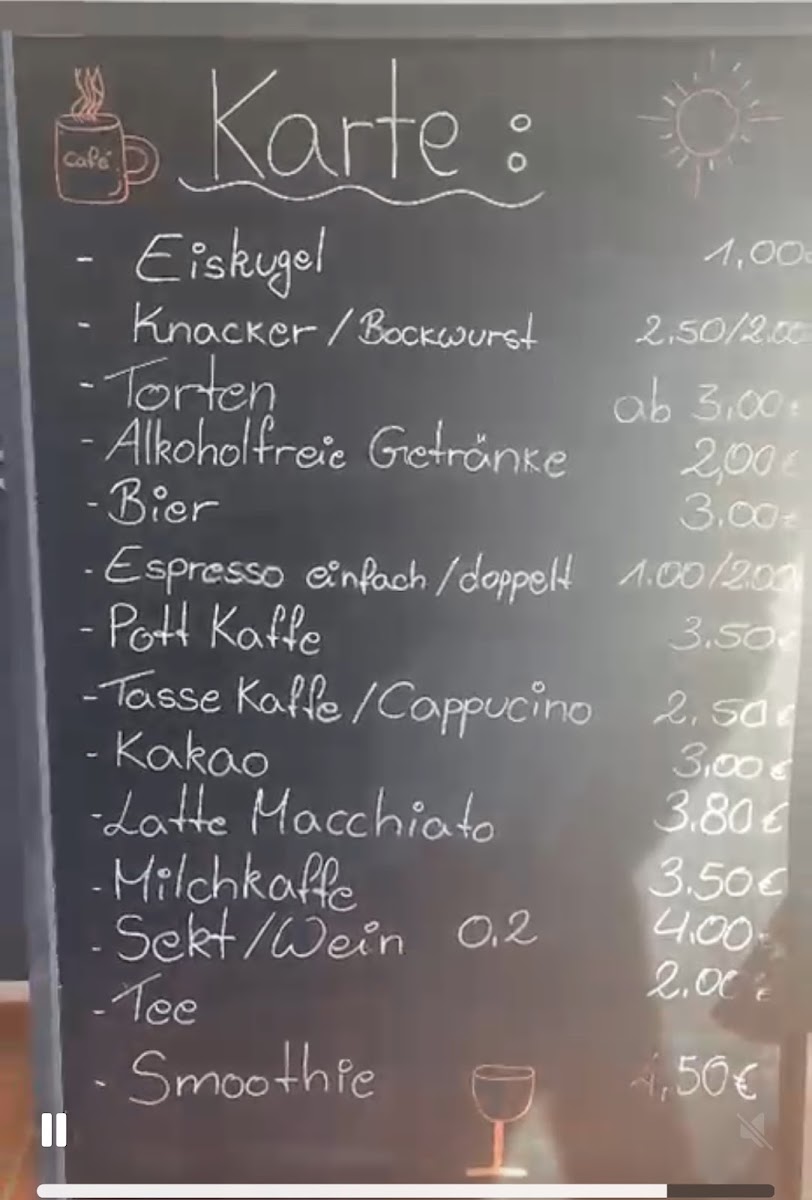 Café
Karte :
- Eiskugel 1,00
- Knacker / Bockwurst 2,50/2.00
- Torten ab 3,00€
- Alkoholfreie Getränke 2,00€
- Bier 3.00€
- Espresso einfach / doppelt 1.00/2.00
- Pott Kaffe 3.50€
- Tasse Kaffe / Cappucino 2,50€
- Kakao 3,00€
- Latte Macchiato 3.80€
- Milchkaffe 3.50€
- Sekt / Wein 0,2 4,00€
- Tee 2.00€
- Smoothie 4,50€